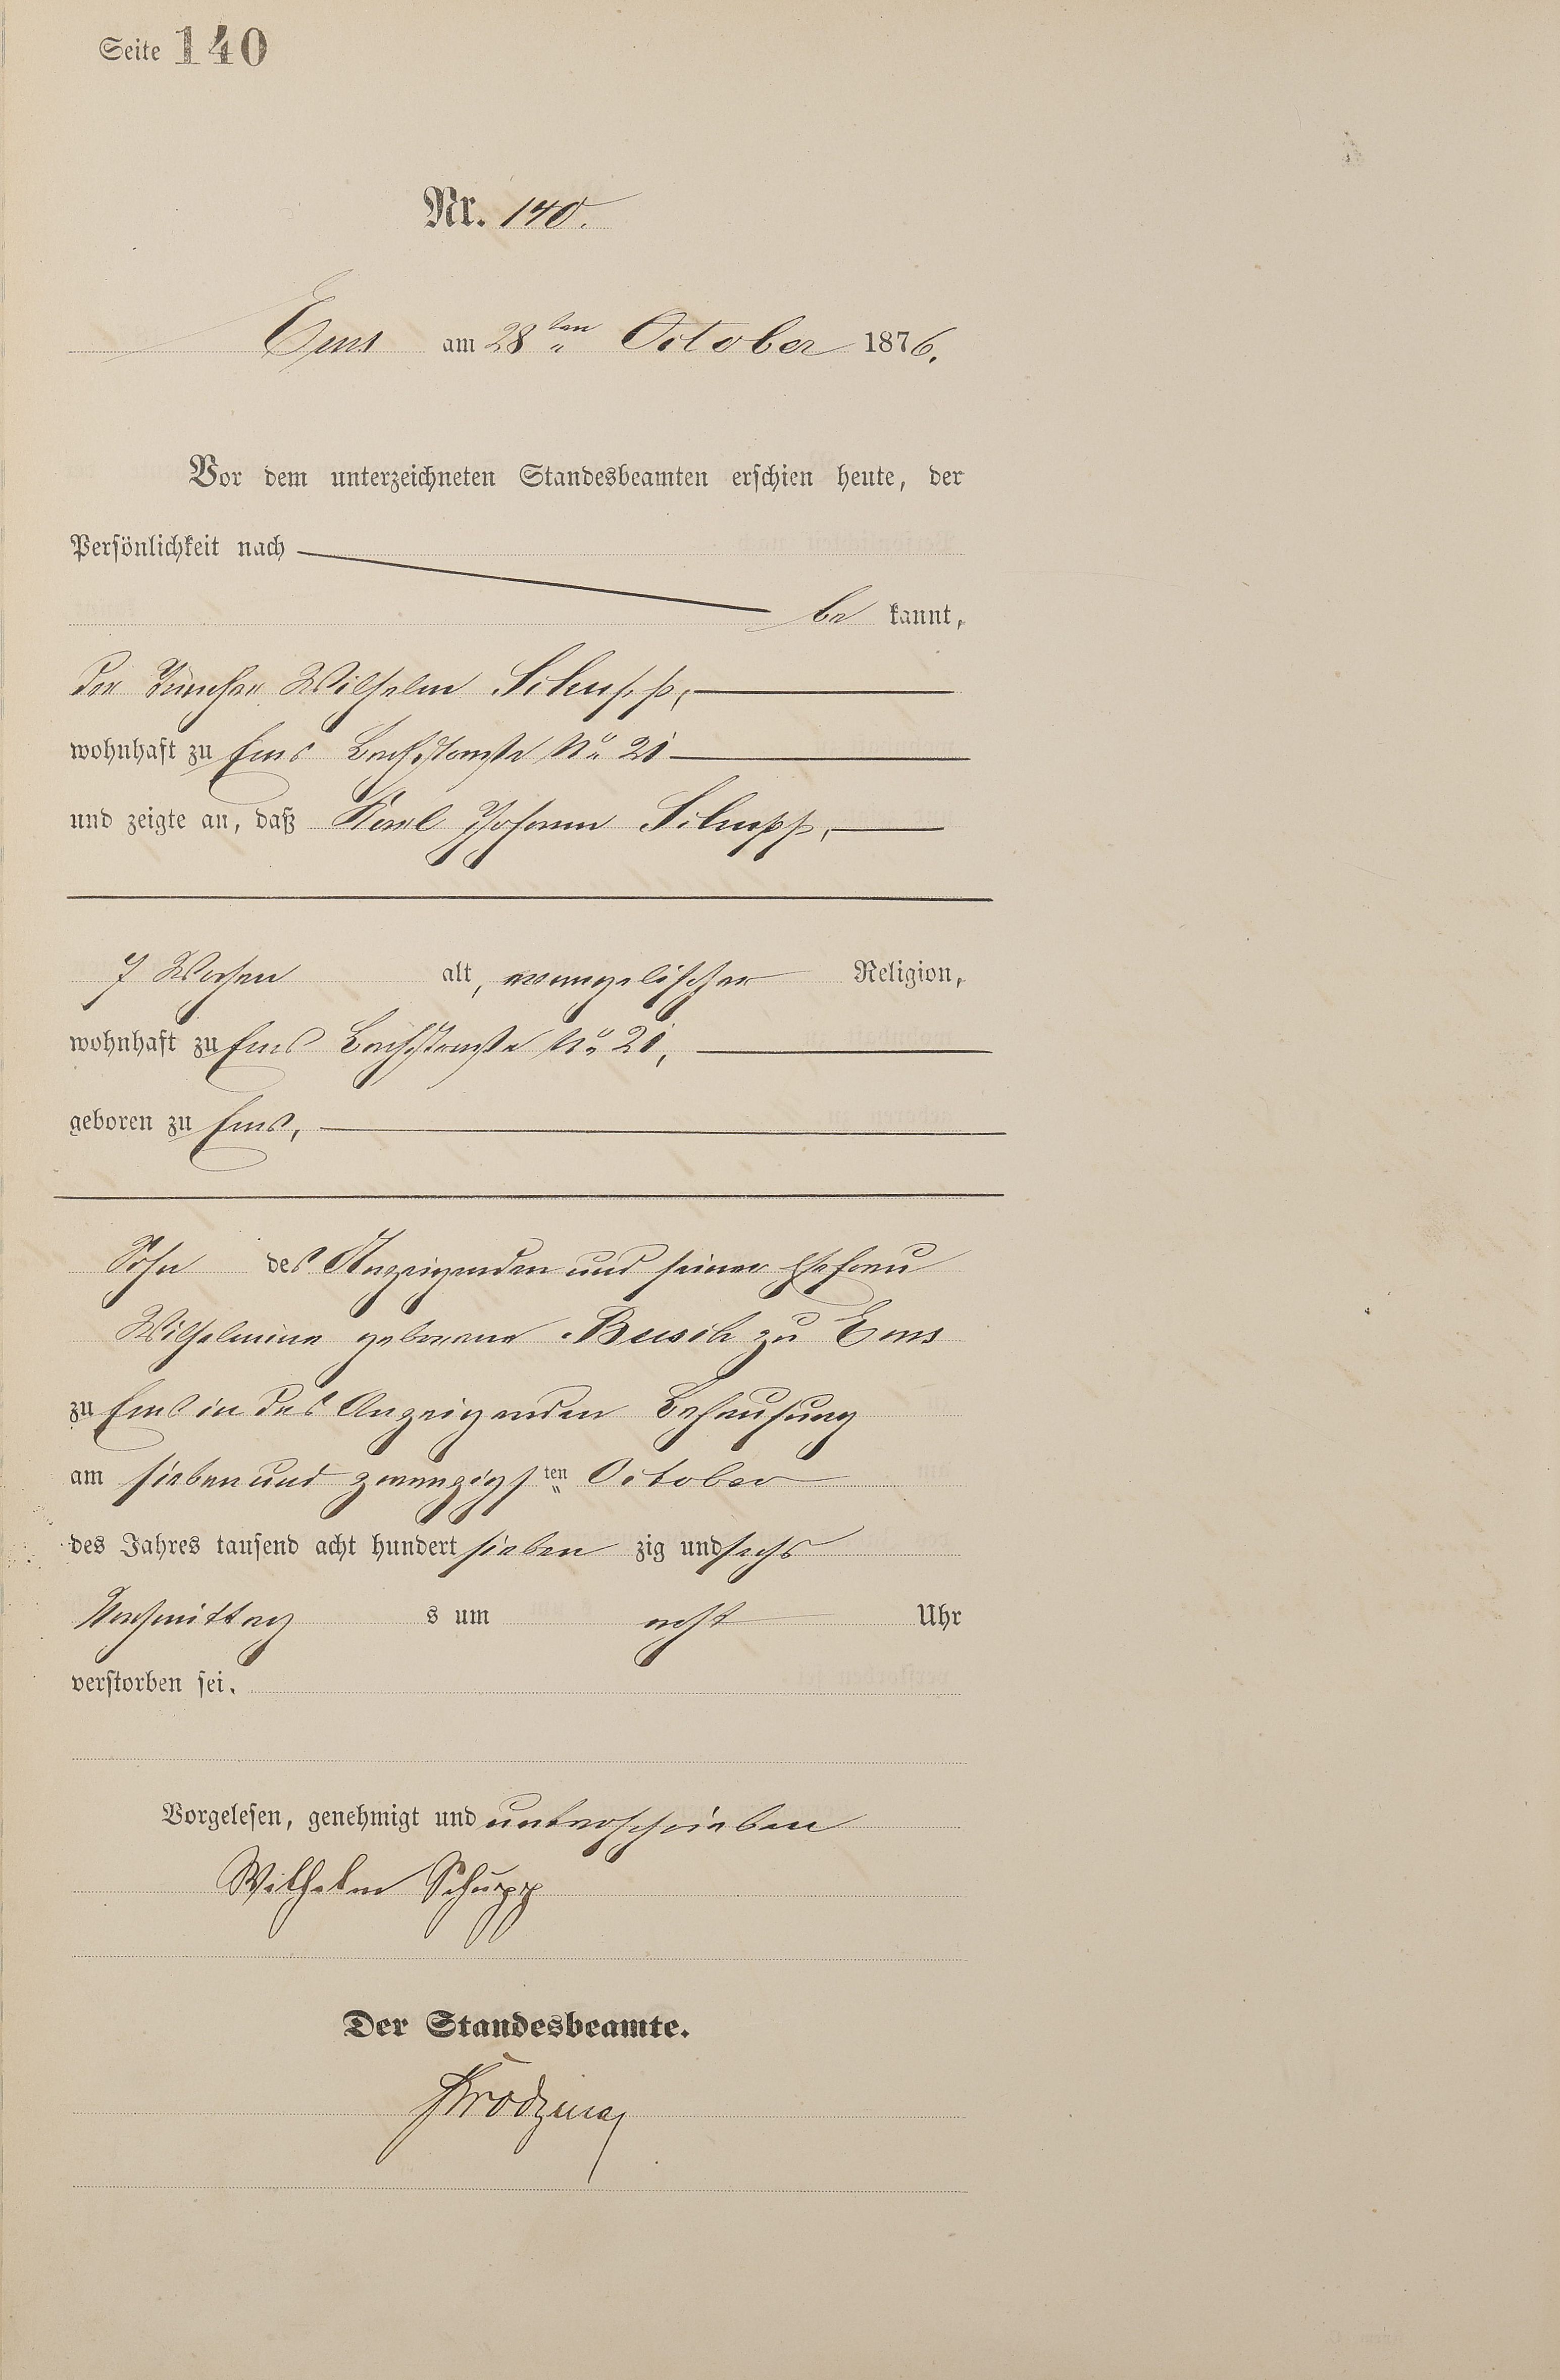 Seite 140
Nr. 140.
Ems am 28ten October 1876.
Vor dem unterzeichneten Standesbeamten erschien heute, der
Persönlichkeit nach
be kannt,
der Tüncher Wilhelm Schupp,
wohnhaft zu Ems Bachstraße No 21
und zeigte an, daß Karl Johann Schupp,
7 Wochen alt, evangelischer Religion,
wohnhaft zu Ems Bachstraße No 21,
geboren zu Ems,
Sohn des Anzeigenden und seiner Ehefrau
Wilhelmine geborene Busch zu Ems
zu Ems in des Anzeigenden Behausung
am sieben und zwanzigsten October
des Jahres tausend acht hundert sieben zig und sechs
Nachmittag s um acht Uhr
verstorben sei.
Vorgelesen, genehmigt und unterschrieben
Wilhelm Schupp
Der Standesbeamte.